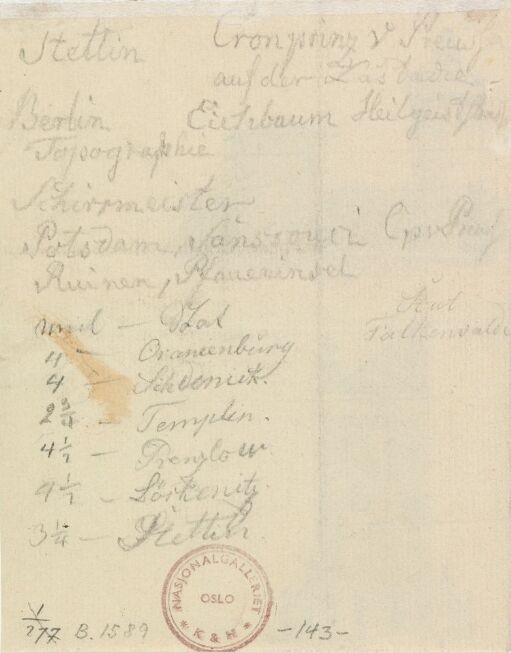 Stettin Cronprinz v Preuß
auf der Lastadie
Berlin Eichbaum Heilgeist
Topographie
Schirrmeister
Potsdam, Sanssouci
Ruinen, Pfaueninsel
Falkenwalde
4 — Oranienburg
4 — 
2 3/4 — Templin.
4 1/2 — Prenzlow
4 1/2 — Löckenitz
3 1/4 — Stettin
NASJONALGALLERIET
OSLO
K & H
B. 1589 -143-